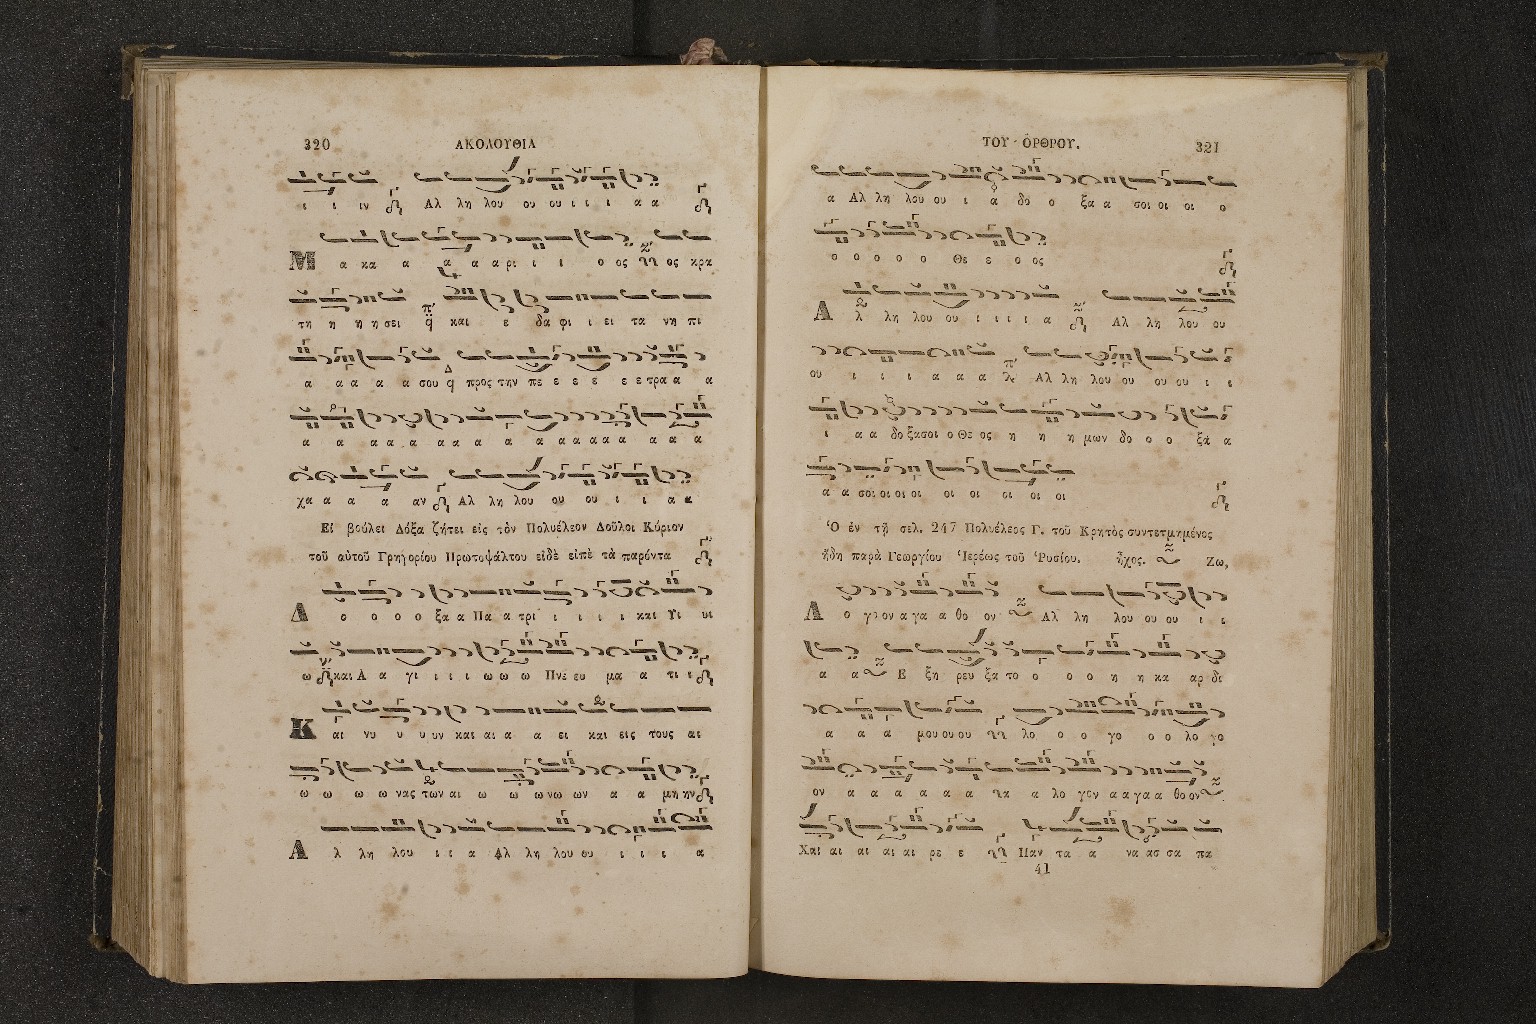 320 ΑΚΟΛΟΥΘΙΑ
ι ι ιν Αλ λη λου ου ου ι ι ι α α
Μ α κα α α α α ρι ι ι ι ο ος ος κρα
τη η η η σει και ε δα φι ι ει τα νη πι
α α α α α σου προς την πε ε ε ε ε ε τρα α α
α α α α α α α α α α α α α α α α α α
χα α α α αν Αλ λη λου ου ου ι ι α α
Εἰ βούλει Δόξα ζήτει εἰς τὸν Πολυέλεον Δοῦλοι Κύριον
τοῦ αὐτοῦ Γρηγορίου Πρωτοψάλτου εἰδὲ εἰπὲ τὰ παρόντα
Δ ο ο ο ο ξα α Πα α τρι ι ι ι ι και Υι υι
ω και Α α γι ι ι ι ω ω ω Πνε ευ μα α τι ι
Κ αι νυ υ υ υν και αι α α ει και εις τους αι
ω ω ω ω νας των αι ω ω ω νω ων α α μη ην
Α λ λη λου ι ι α Αλ λη λου ου ι ι ι α
ΤΟΥ ΟΡΘΡΟΥ. 321
α Αλ λη λου ου ι α δο ο ξα α σοι οι οι ο
ο ο ο ο ο Θε ε ο ος
Α λ λη λου ου ι ι ι ι α Αλ λη λου ου
ου ι ι ι α α α Αλ λη λου ου ου ου ι ι
ι α α δο ξα σοι ο Θε ος η η η μων δο ο ο ξα α
α α σοι οι οι οι οι οι οι οι οι
Ὁ ἐν τῇ σελ. 247 Πολυέλεος Γ. τοῦ Κρητὸς συντετμημένος
ἤδη παρὰ Γεωργίου Ἱερέως τοῦ Ῥυσίου. ἦχος. Ζω,
Λ ο γον α γα α θο ον Αλ λη λου ου ου ι ι
α α Ε ξη ρευ ξα το ο ο ο η η κα αρ δι
α α α μου ου ου λο ο ο γο ο ο λο γο
ον α α α α α α α λο γον α α γα α θο ον
Χαι αι αι αι αι ρε ε Παν τα α να ασ σα πα
41